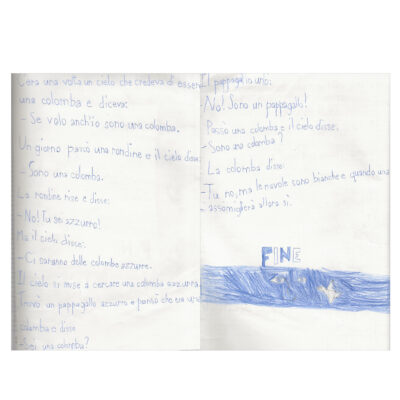 C'era una volta un cielo che credeva di essere
una colomba e diceva:
- Se volo anch'io sono una colomba.
Un giorno passò una rondine e il cielo disse:
- Sono una colomba.
La rondine rise e disse:
- No! Tu sei azzurro!
Ma il cielo disse:
- Ci saranno delle colombe azzurre.
Il cielo si mise a cercare una colomba azzurra.
Trovò un pappagallo azzurro e pensò che era una
colomba e disse
- Sei una colomba?
Il pappagallo urlò:
- No! Sono un pappagallo!
Passò una colomba e il cielo disse:
- Sono una colomba?
La colomba disse:
- Tu no, ma le nuvole sono bianche e quando una
assomiglierà allora sì.
FINE